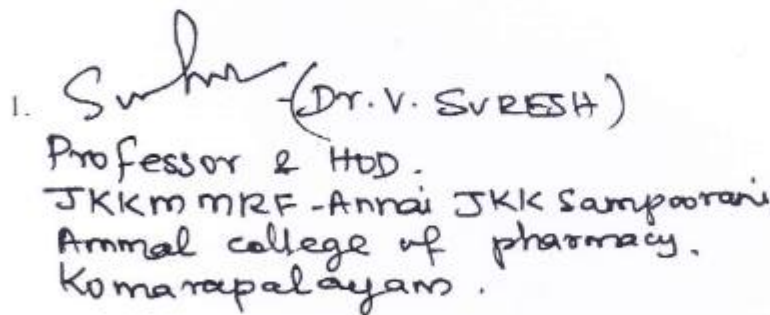 1. (Dr. V. SURESH)
Professor & HOD.
JKKMMRF-Annai JKK Sampoorani
Ammal college of pharmacy.
Komarapalayam.